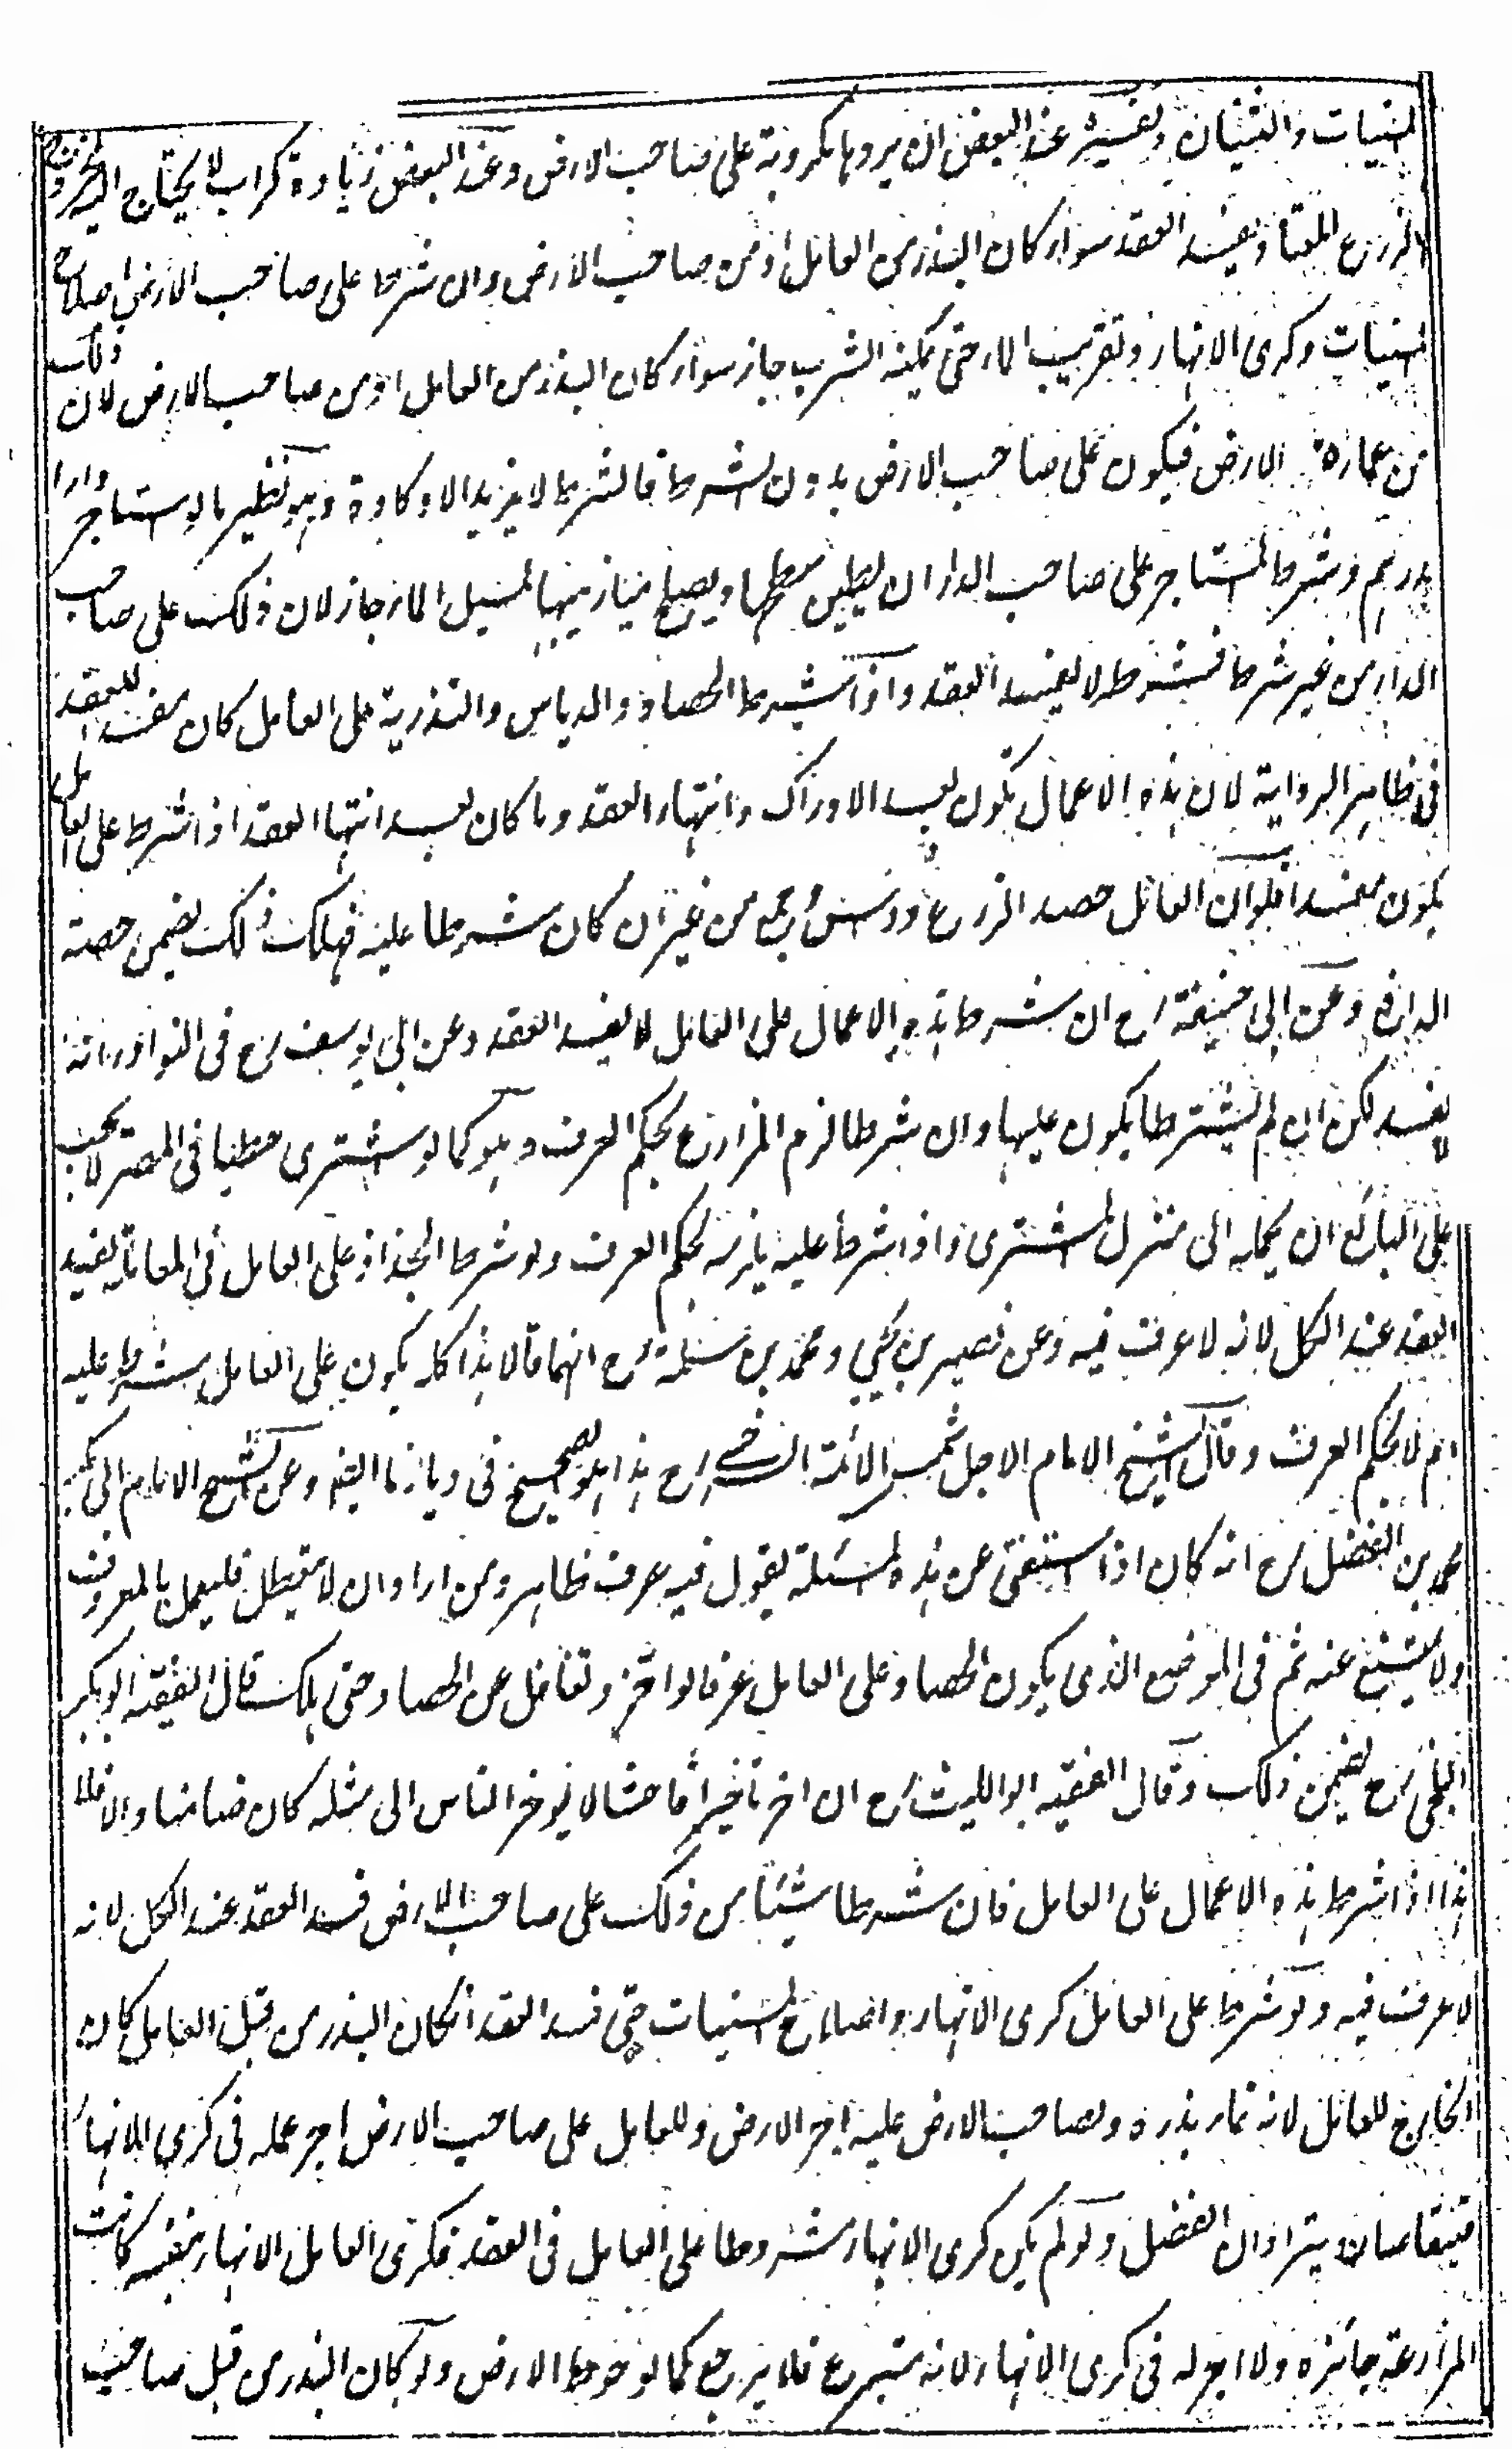 المسنيات والثنيان وتفسيره عند البعض ان يردها مكروبة على صاحب الارض وعند البعض زيادة كراب لا يحتاج اليه
الزرع المعتاد ويفسد العقد سواء كان البذر من العامل او من صاحب الارض وان شرط على صاحب الارض اصلاح
المسنيات وكرى الانهار وتقريب الماء حتى يمكنه الشرب جاز سواء كان البذر من العامل او من صاحب الارض لان ذلك
من عمارة الارض فيكون على صاحب الارض بدون الشرط فالشرط لا يزيد الا وكادة وهو نظير ما لو استاجر دارا
بدرهم وشرط المستاجر على صاحب الدار ان يطين سطحها ويصلح ميازيبها لمسيل الماء جاز لان ذلك على صاحب
الدار من غير شرط فبشرط لا يفسد العقد واذا شرط الحصاد والدياس والتذرية على العامل كان مفسدا للعقد
فى ظاهر الرواية لان هذه الاعمال تكون بعد الادراك وانتهاء العقد وما كان بعد انتهاء العقد اذا شرط على العامل
يكون مفسدا فلو ان العامل حصد الزرع وداس وجمع من غير ان كان شرطا عليه فهلك ذلك يضمن حصة
الدافع وعن ابى حنيفة رح ان شرط هذه الاعمال على العامل لا يفسد العقد وعن ابى يوسف رح فى النوادر انه
لا يفسد لكن ان لم يشترطا يكون عليهما وان شرطا لزم المزارع بحكم العرف وهو كما لو اشترى حطبا فى المصر لا يجب
على البائع ان يحمله الى منزل المشترى واذا شرط عليه يلزمه بحكم العرف ولو شرط الجذاذ على العامل فى المعاملة يفسد
العقد عند الكل لانه لا عرف فيه وعن نصير بن يحيى ومحمد بن سلمة رح انهما قالا هذا كله يكون على العامل شرط عليه
ام لا بحكم العرف وقال الشيخ الامام الاجل شمس الائمة السرخسى رح هذا هو الصحيح فى ديارنا ايضا وعن الشيخ الامام ابى بكر
محمد بن الفضل رح انه كان اذا استفتى عن هذه المسئلة يقول فيه عرف ظاهر ومن اراد ان لا يتعطل فليعمل بالمعروف
ولا يمتنع عنه ثم فى الموضع الذى يكون الحصاد على العامل عرفا لو اخر وتغافل عن الحصاد حتى هلك قال الفقيه ابو بكر
البلخى رح يضمن ذلك وقال الفقيه ابو الليث رح ان اخر تاخيرا فاحشا لا يؤخر الناس الى مثله كان ضامنا والا فلا
هذا اذا شرط هذه الاعمال على العامل فان شرطا شيئا من ذلك على صاحب الارض فسد العقد عند الكل لانه
لا عرف فيه ولو شرط على العامل كرى الانهار واصلاح المسنيات حتى فسد العقد ان كان البذر من قبل العامل كان
الخارج للعامل لانه نماء بذره ولصاحب الارض عليه اجر الارض وللعامل على صاحب الارض اجر عمله فى كرى الانهار
فيتقاصان ويترادان الفضل ولو لم يكن كرى الانهار مشروطا على العامل فى العقد فكرى العامل الانهار بنفسه كانت
المزارعة جائزة ولا اجر له فى كرى الانهار لانه متبرع فلا يرجع كما لو حوط الارض ولو كان البذر من قبل صاحب